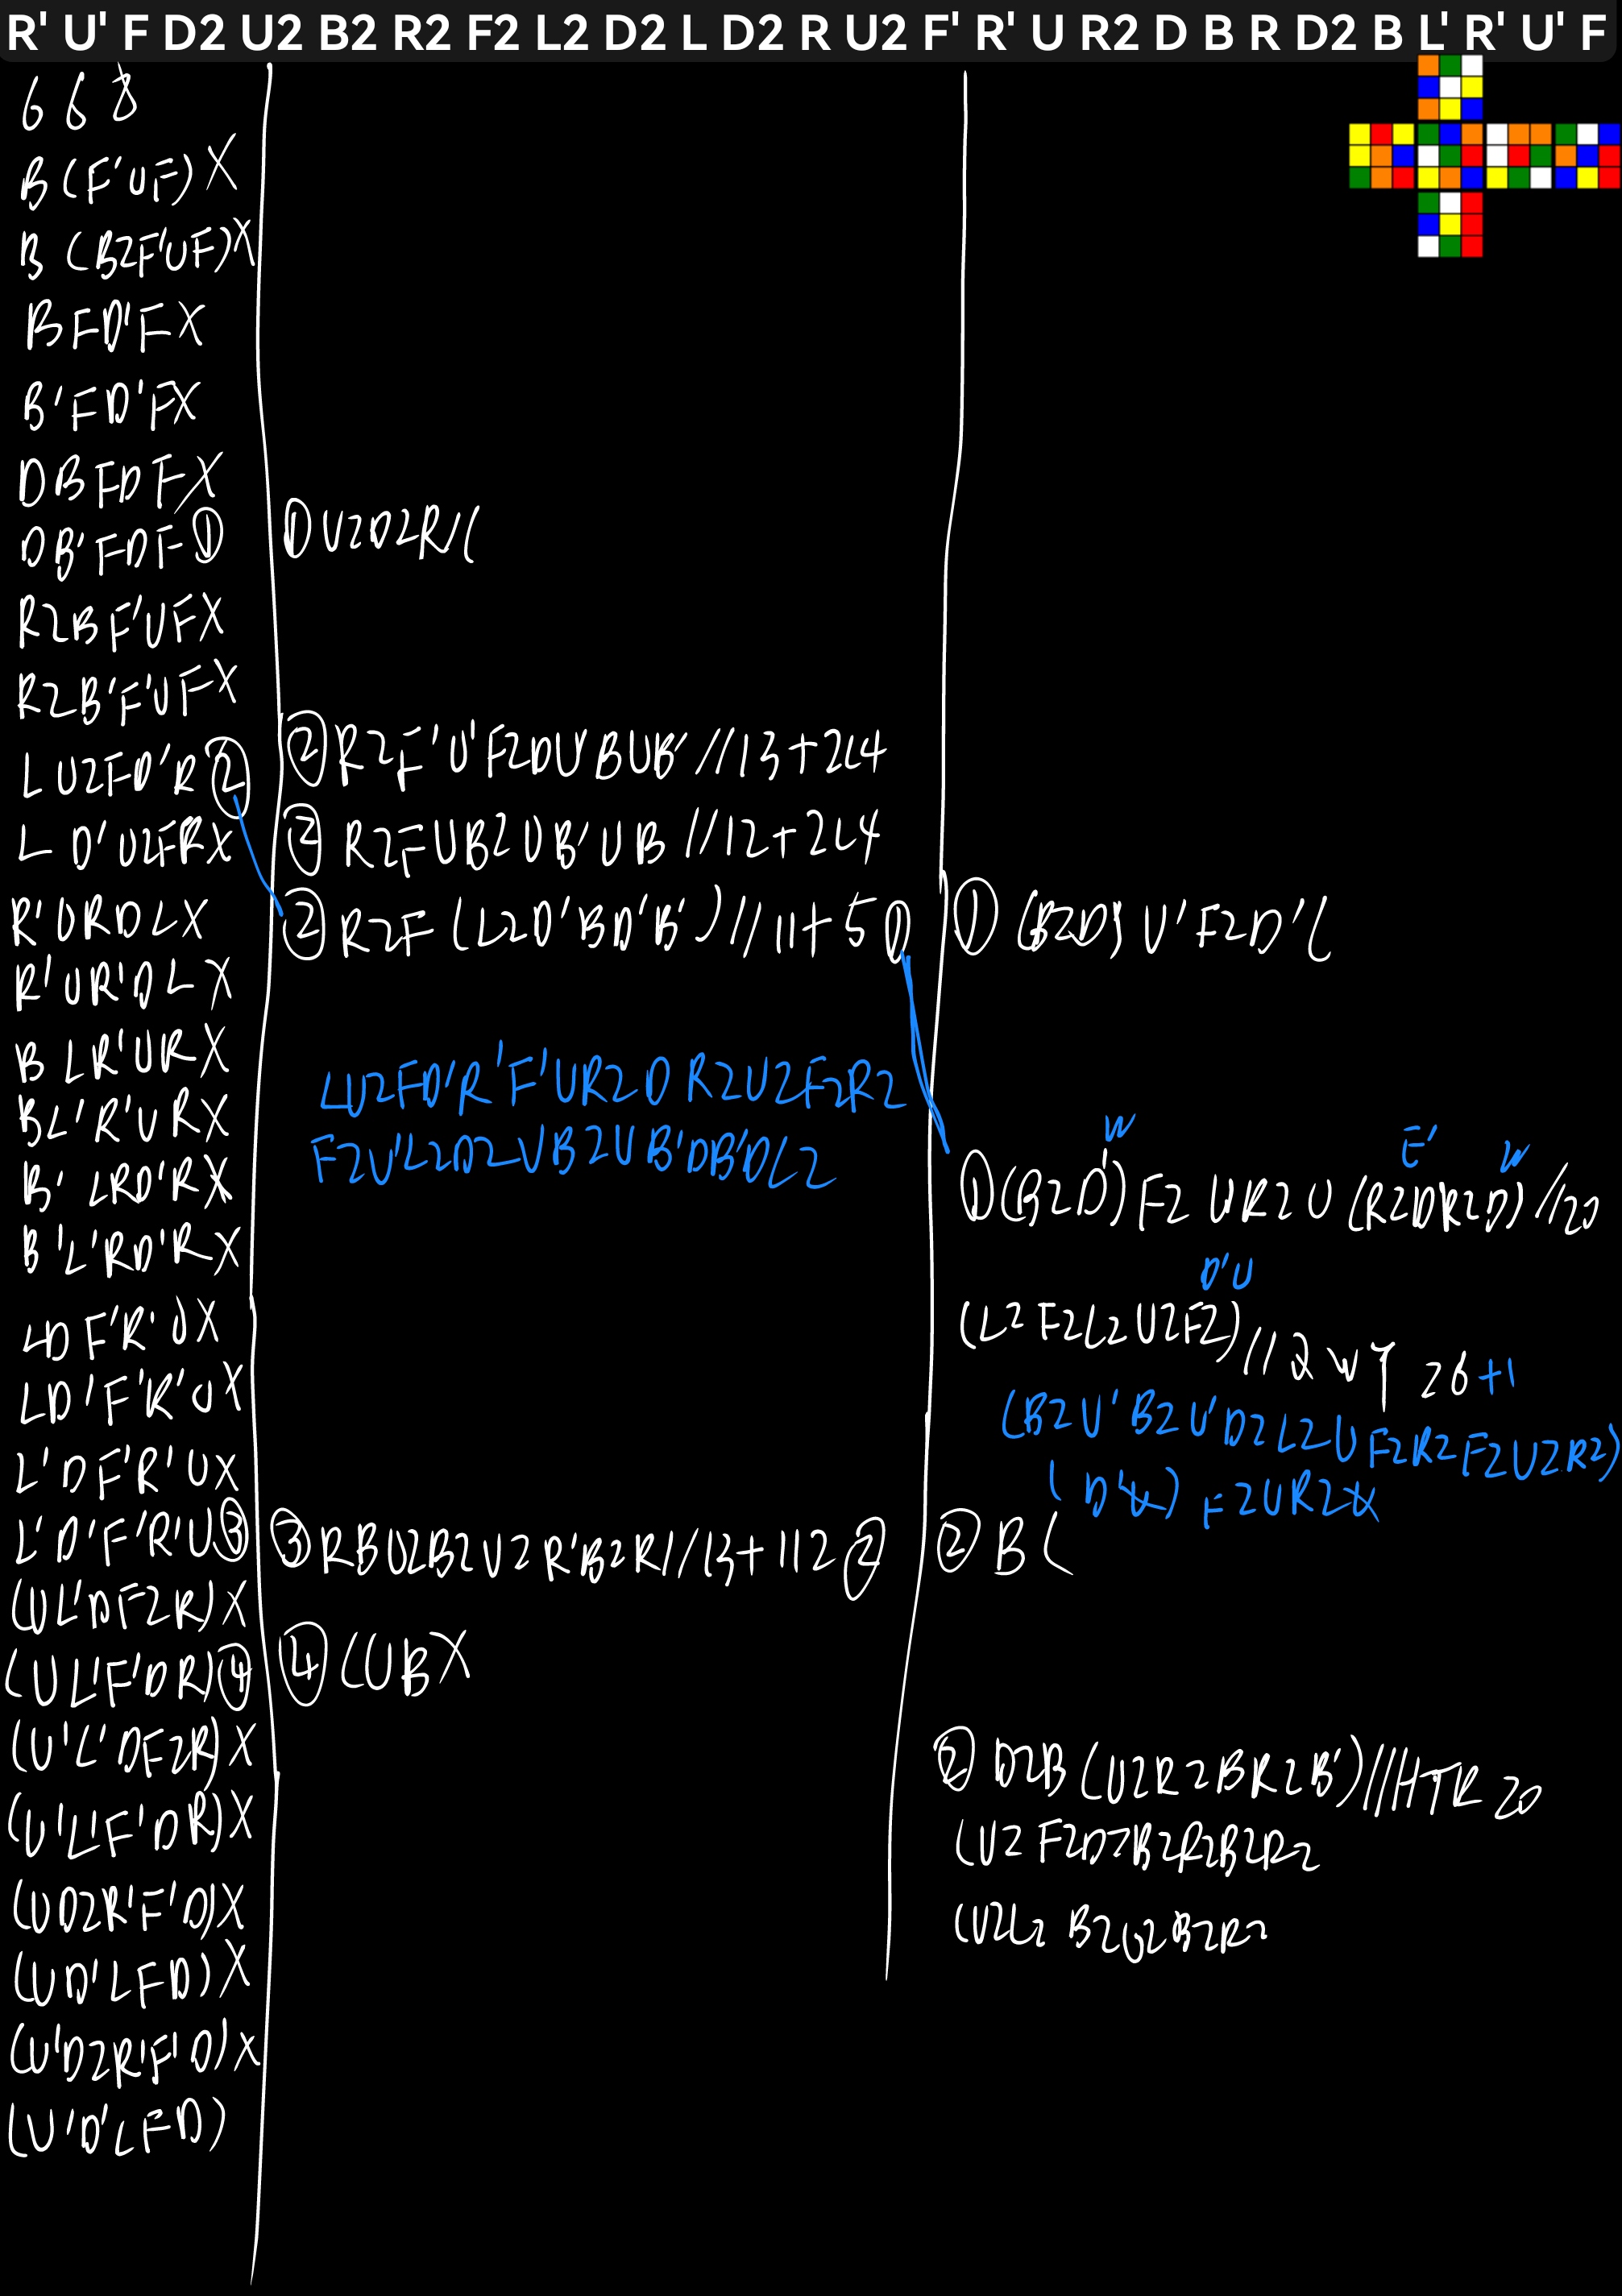 R' U' F D2 U2 B2 R2 F2 L2 D2 L D2 R U2 F' R' U R2 D B R D2 B L' R' U' F
6 6 8
B (F'UF) X
B (B2F'UF) X
BFD'F X
B'FD'F X
DBFDF X
DB'FDF ①
R2BF'UF X
R2B'F'UF X
LU2FD'R ②
LD'U2FR X
R'URDL X
R'UR'DL X
BLR'UR X
BL'R'UR X
B'LRD'R X
B'L'RD'R X
LDF'R'U X
LD'F'R'U X
L'DF'R'U X
L'D'F'R'U ③
(UL'DF2R) X
(UL'F'DR) ④
(U'L'DF2R) X
(U'L'F'DR) X
(UD2R'F'D) X
(UD'LFD) X
(U'D2R'F'D) X
(U'D'LFD)
① U2D2R//(
② R2F'U'F2DU'BUB' //13+2L4
② R2FUB2UB'UB //12+2L4
② R2F (L2D'BD'B') //11+5 ①
LU2FD'R'F'UR2DR2U2F2R2
F2U'L2D2UB2UB'DB'DL2
③ RBU2B2U2R'B2R//13+112 ②
④ (UB X
① (B2D) U'F2D'(
W
E'
W
① (B2D') F2 U R2 U (R2DR2D) //20
D'U
(L2F2L2U2F2) // 2 w 26 +1
(B2U'B2U'D2L2UF2R2F2U2R2)
F2UR2
② B (
② D2B (U2R2BR2B') //HTR 20
(U2F2D2B2R2B2R2
(U2L2B2U2B2R2